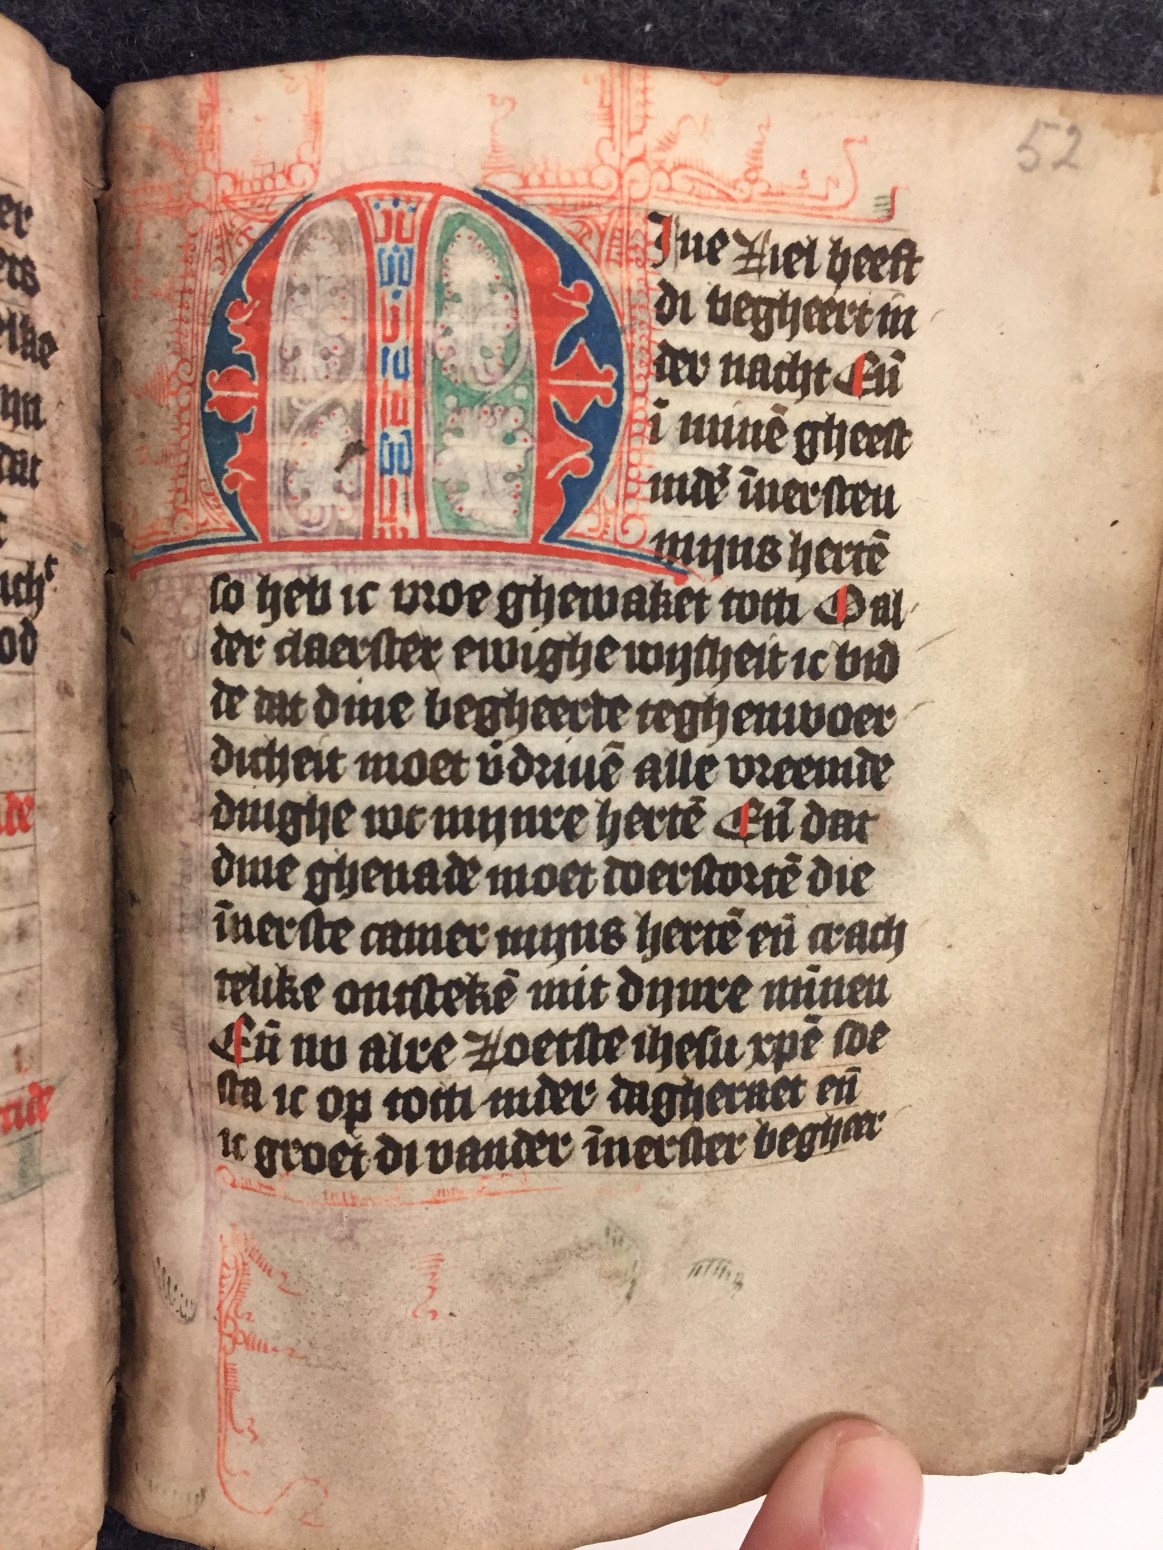 52
Mine ziel heeft
di begheert in
der nacht Eñ
ī minē gheest
indē īnersten
mijns hertē
so heb ic vroe ghewaket totti O al
der claerster ewighe wijsheit ic bid
de dat dine begheerte teghenwoer
dicheit moet v̄driuē alle vreemde
dinghe wt mijnre hertē Eñ dat
dine ghenade moet doerstortē die
īnerste camer mijns hertē eñ crach
telike ontstekē mit dijnre mīnen
Eñ nv alre zoetste ihesu xpē soe
sta ic op totti inder dagheraet eñ
ic groet di vander īnerster begheer